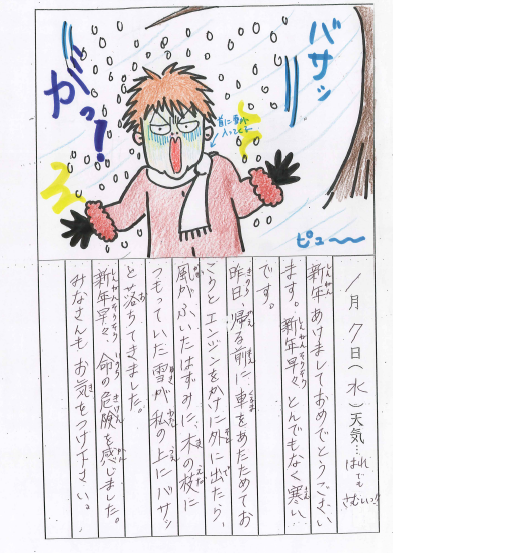 バサッ
がっ!
首に雪が
入ってくる
ピュ〜〜
1月7日(水)天気…はれ
でも
さむいっ!!
新年あけましておめでとうござい
ます。新年早々とんでもなく寒い
です。
昨日帰る前に車をあたためてお
こうとエンジンをかけに外に出たら、
風がふいたはずみに、木の枝に
つもっていた雪が私の上にバサッ
と落ちてきました。
新年早々、命の危険を感じました。
みなさんもお気をつけ下さい。